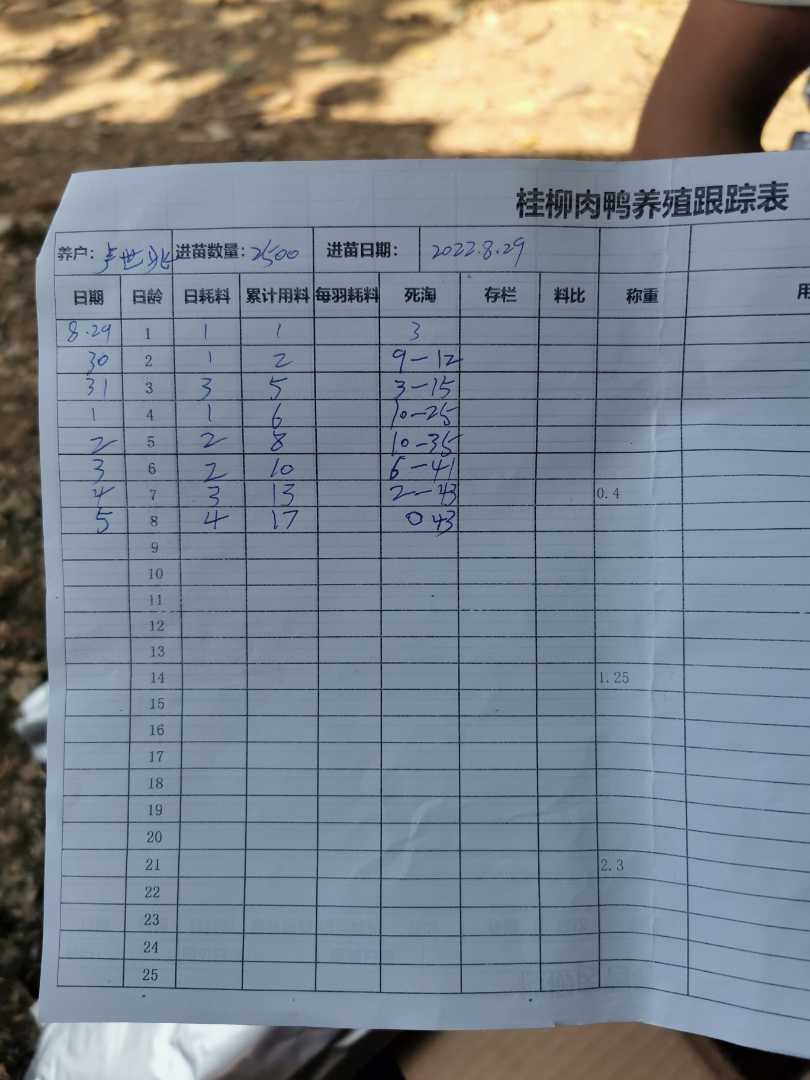 桂柳肉鸭养殖跟踪表
养户: 世 进苗数量: 2500 进苗日期: 2022.8.29
日期 日龄 日耗料 累计用料 每羽耗料 死淘 存栏 料比 称重 用
8.29 1 1 1 3
30 2 1 2 9-12
31 3 3 5 3-15
1 4 1 6 10-25
2 5 2 8 10-35
3 6 2 10 6-41
4 7 3 13 2-43 0.4
5 8 4 17 0 43
9
10
11
12
13
14 1.25
15
16
17
18
19
20
21 2.3
22
23
24
25